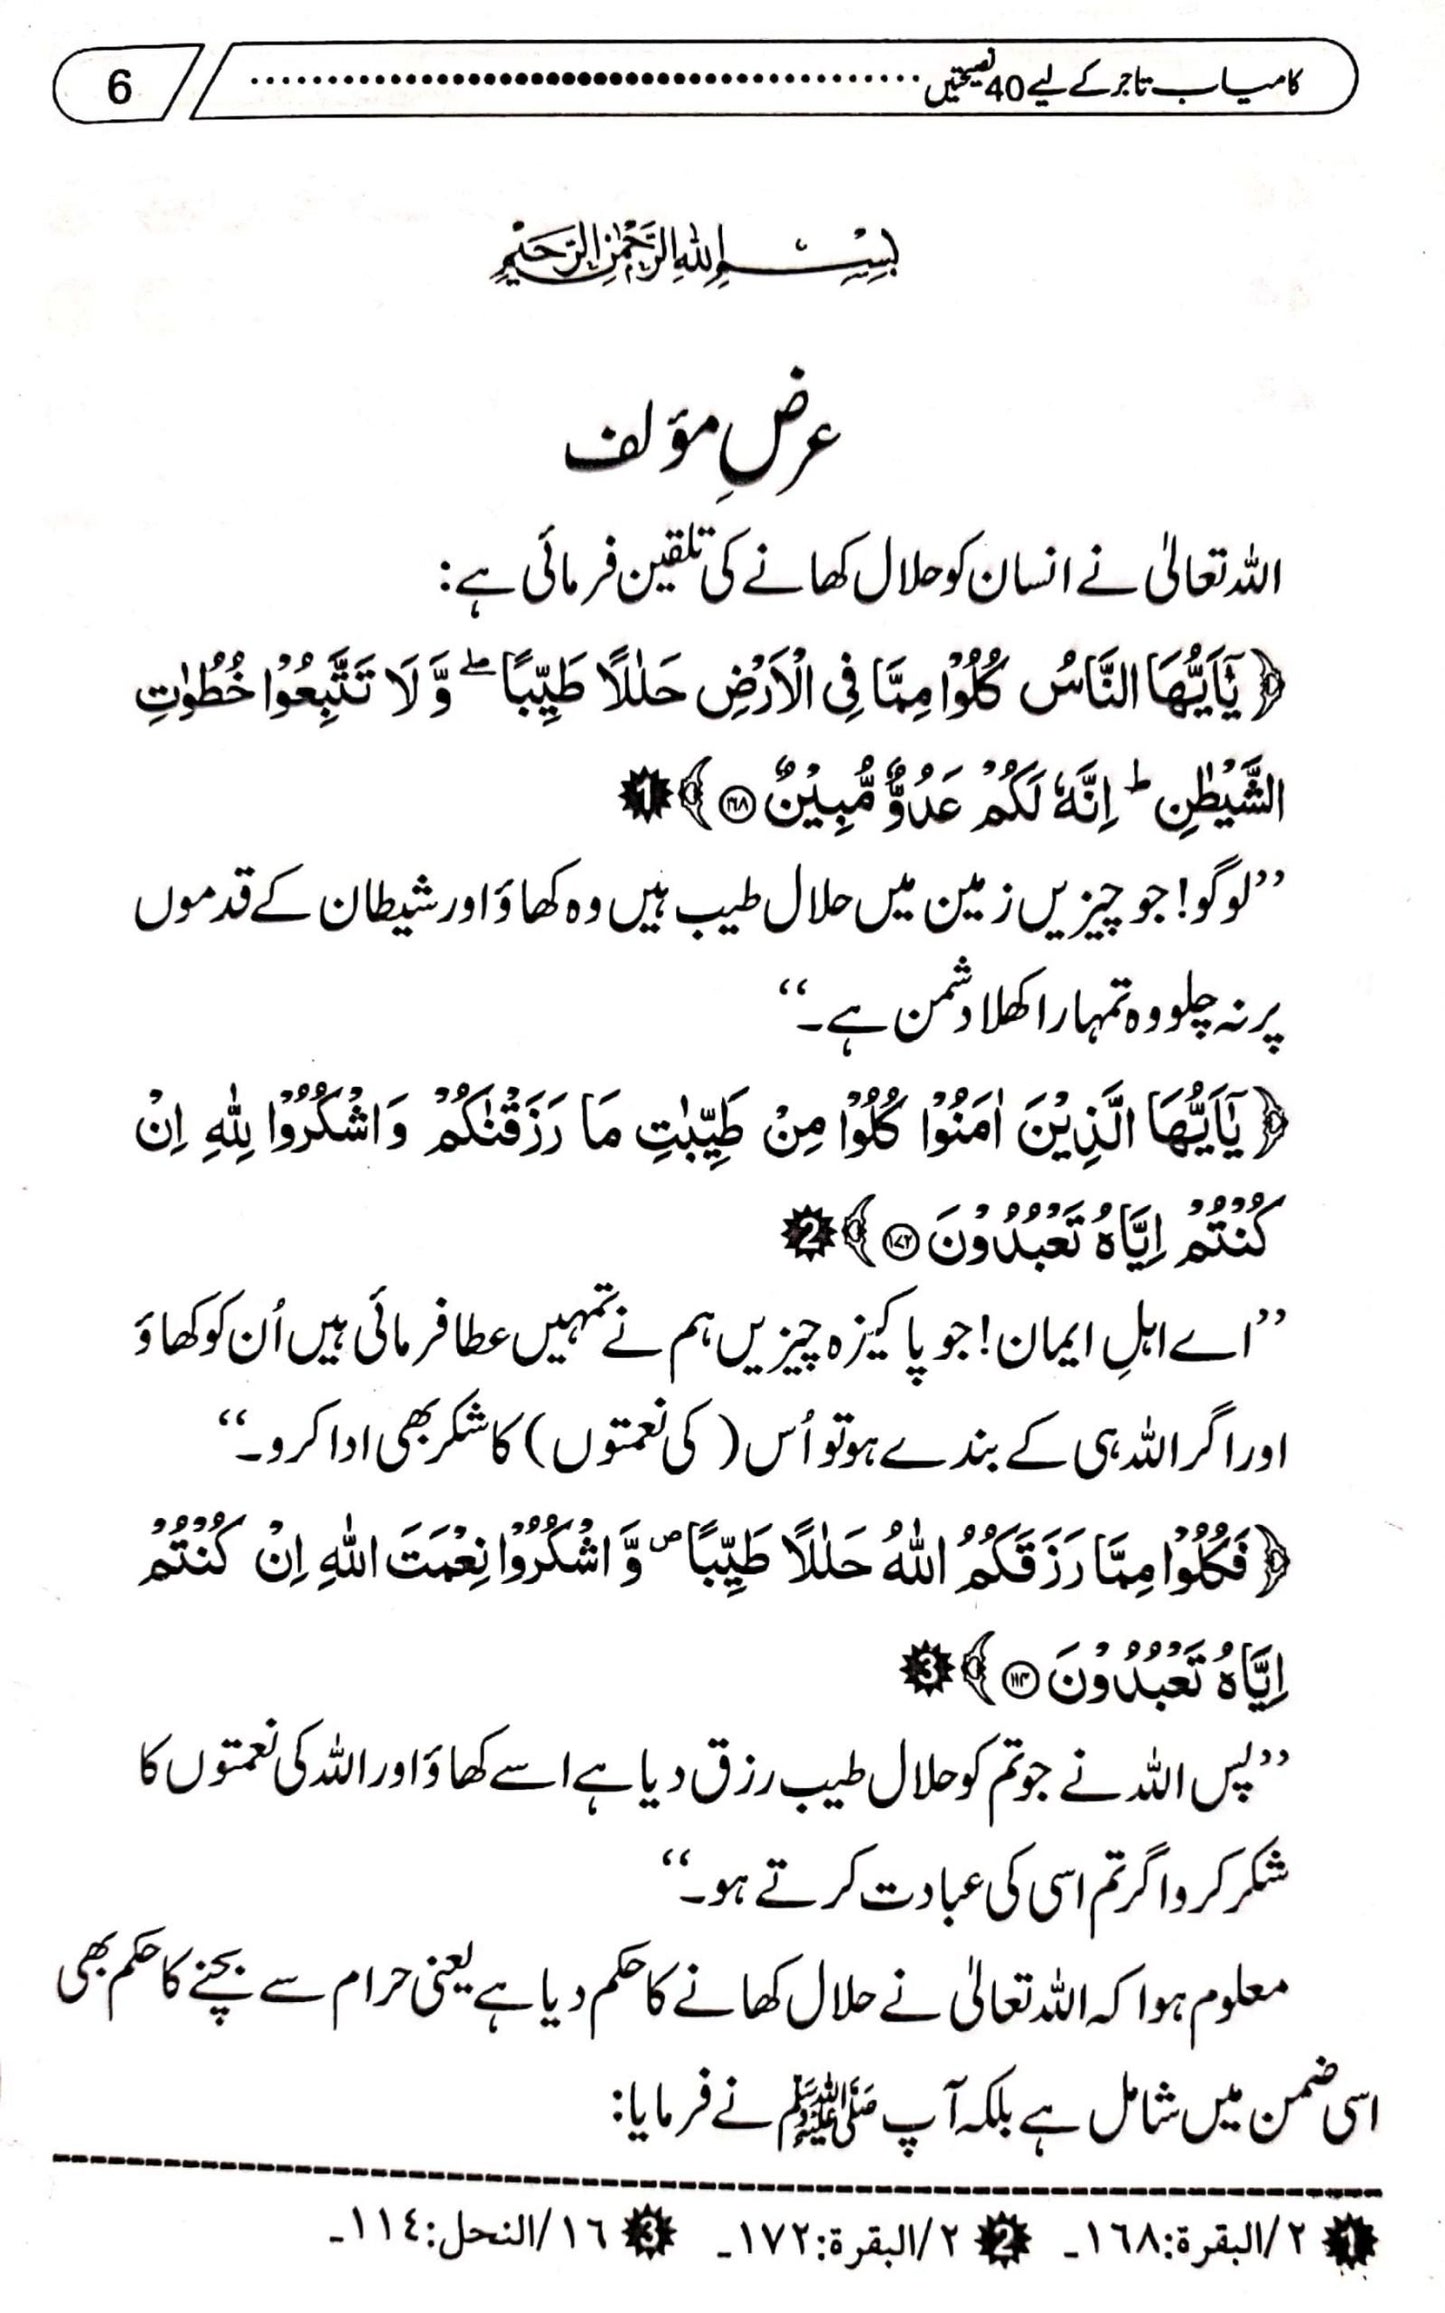 کامیاب تاجر کے لیے 40 نصیحتیں 6
بِسْمِ اللهِ الرَّحْمٰنِ الرَّحِيْمِ
عرضِ مؤلف
اللہ تعالیٰ نے انسان کو حلال کھانے کی تلقین فرمائی ہے:
﴿ يٰۤاَيُّهَا النَّاسُ كُلُوْا مِمَّا فِي الْاَرْضِ حَلٰلًا طَيِّبًا ۖ وَّ لَا تَتَّبِعُوْا خُطُوٰتِ
الشَّيْطٰنِ ؕ اِنَّهٗ لَكُمْ عَدُوٌّ مُّبِيْنٌ ۝۱۶۸ ﴾ 1
’’لوگو! جو چیزیں زمین میں حلال طیب ہیں وہ کھاؤ اور شیطان کے قدموں
پر نہ چلو وہ تمہارا کھلا دشمن ہے۔‘‘
﴿ يٰۤاَيُّهَا الَّذِيْنَ اٰمَنُوْا كُلُوْا مِنْ طَيِّبٰتِ مَا رَزَقْنٰكُمْ وَ اشْكُرُوْا لِلّٰهِ اِنْ
كُنْتُمْ اِيَّاهُ تَعْبُدُوْنَ ۝۱۷۲ ﴾ 2
’’اے اہلِ ایمان! جو پاکیزہ چیزیں ہم نے تمہیں عطا فرمائی ہیں اُن کو کھاؤ
اور اگر اللہ ہی کے بندے ہو تو اُس (کی نعمتوں) کا شکر بھی ادا کرو۔‘‘
﴿ فَكُلُوْا مِمَّا رَزَقَكُمُ اللّٰهُ حَلٰلًا طَيِّبًا ۪ وَّ اشْكُرُوْا نِعْمَتَ اللّٰهِ اِنْ كُنْتُمْ
اِيَّاهُ تَعْبُدُوْنَ ۝۱۱۴ ﴾ 3
’’پس اللہ نے جو تم کو حلال طیب رزق دیا ہے اسے کھاؤ اور اللہ کی نعمتوں کا
شکر کرو اگر تم اسی کی عبادت کرتے ہو۔‘‘
معلوم ہوا کہ اللہ تعالیٰ نے حلال کھانے کا حکم دیا ہے یعنی حرام سے بچنے کا حکم بھی
اسی ضمن میں شامل ہے بلکہ آپ ﷺ نے فرمایا:
1 ٢/البقرة:١٦٨۔ 2 ٢/البقرة:١٧٢۔ 3 ١٦/النحل:١١٤۔